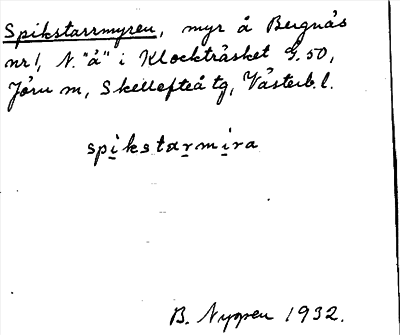 Spikstarrmyren, myr å Bergnäs
nr 1, N. "å" i Klockträsket G. 50,
Jörn sn, Skellefteå tg, Västerb. l.
spikstarmira
B. Nygren 1932.